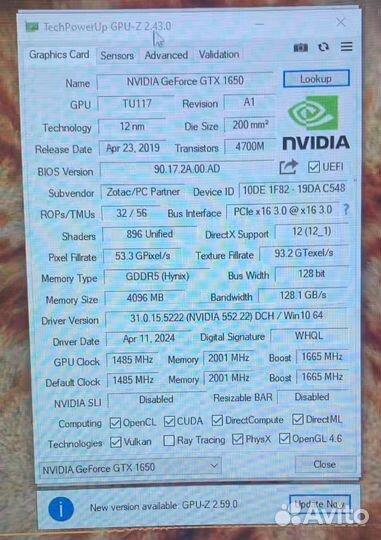 TechPowerUp GPU-Z 2.43.0
Graphics Card Sensors Advanced Validation
Name NVIDIA GeForce GTX 1650 Lookup
GPU TU117 Revision A1
Technology 12 nm Die Size 200 mm²
Release Date Apr 23, 2019 Transistors 4700M
NVIDIA
BIOS Version 90.17.2A.00.AD UEFI
Subvendor Zotac/PC Partner Device ID 10DE 1F82 - 19DA C548
ROPs/TMUs 32 / 56 Bus Interface PCIe x16 3.0 @ x16 3.0 ?
Shaders 896 Unified DirectX Support 12 (12_1)
Pixel Fillrate 53.3 GPixel/s Texture Fillrate 93.2 GTexel/s
Memory Type GDDR5 (Hynix) Bus Width 128 bit
Memory Size 4096 MB Bandwidth 128.1 GB/s
Driver Version 31.0.15.5222 (NVIDIA 552.22) DCH / Win10 64
Driver Date Apr 11, 2024 Digital Signature WHQL
GPU Clock 1485 MHz Memory 2001 MHz Boost 1665 MHz
Default Clock 1485 MHz Memory 2001 MHz Boost 1665 MHz
NVIDIA SLI Disabled Resizable BAR Disabled
Computing OpenCL CUDA DirectCompute DirectML
Technologies Vulkan Ray Tracing PhysX OpenGL 4.6
NVIDIA GeForce GTX 1650 Close
New version available: GPU-Z 2.59.0 Update Now
Avito